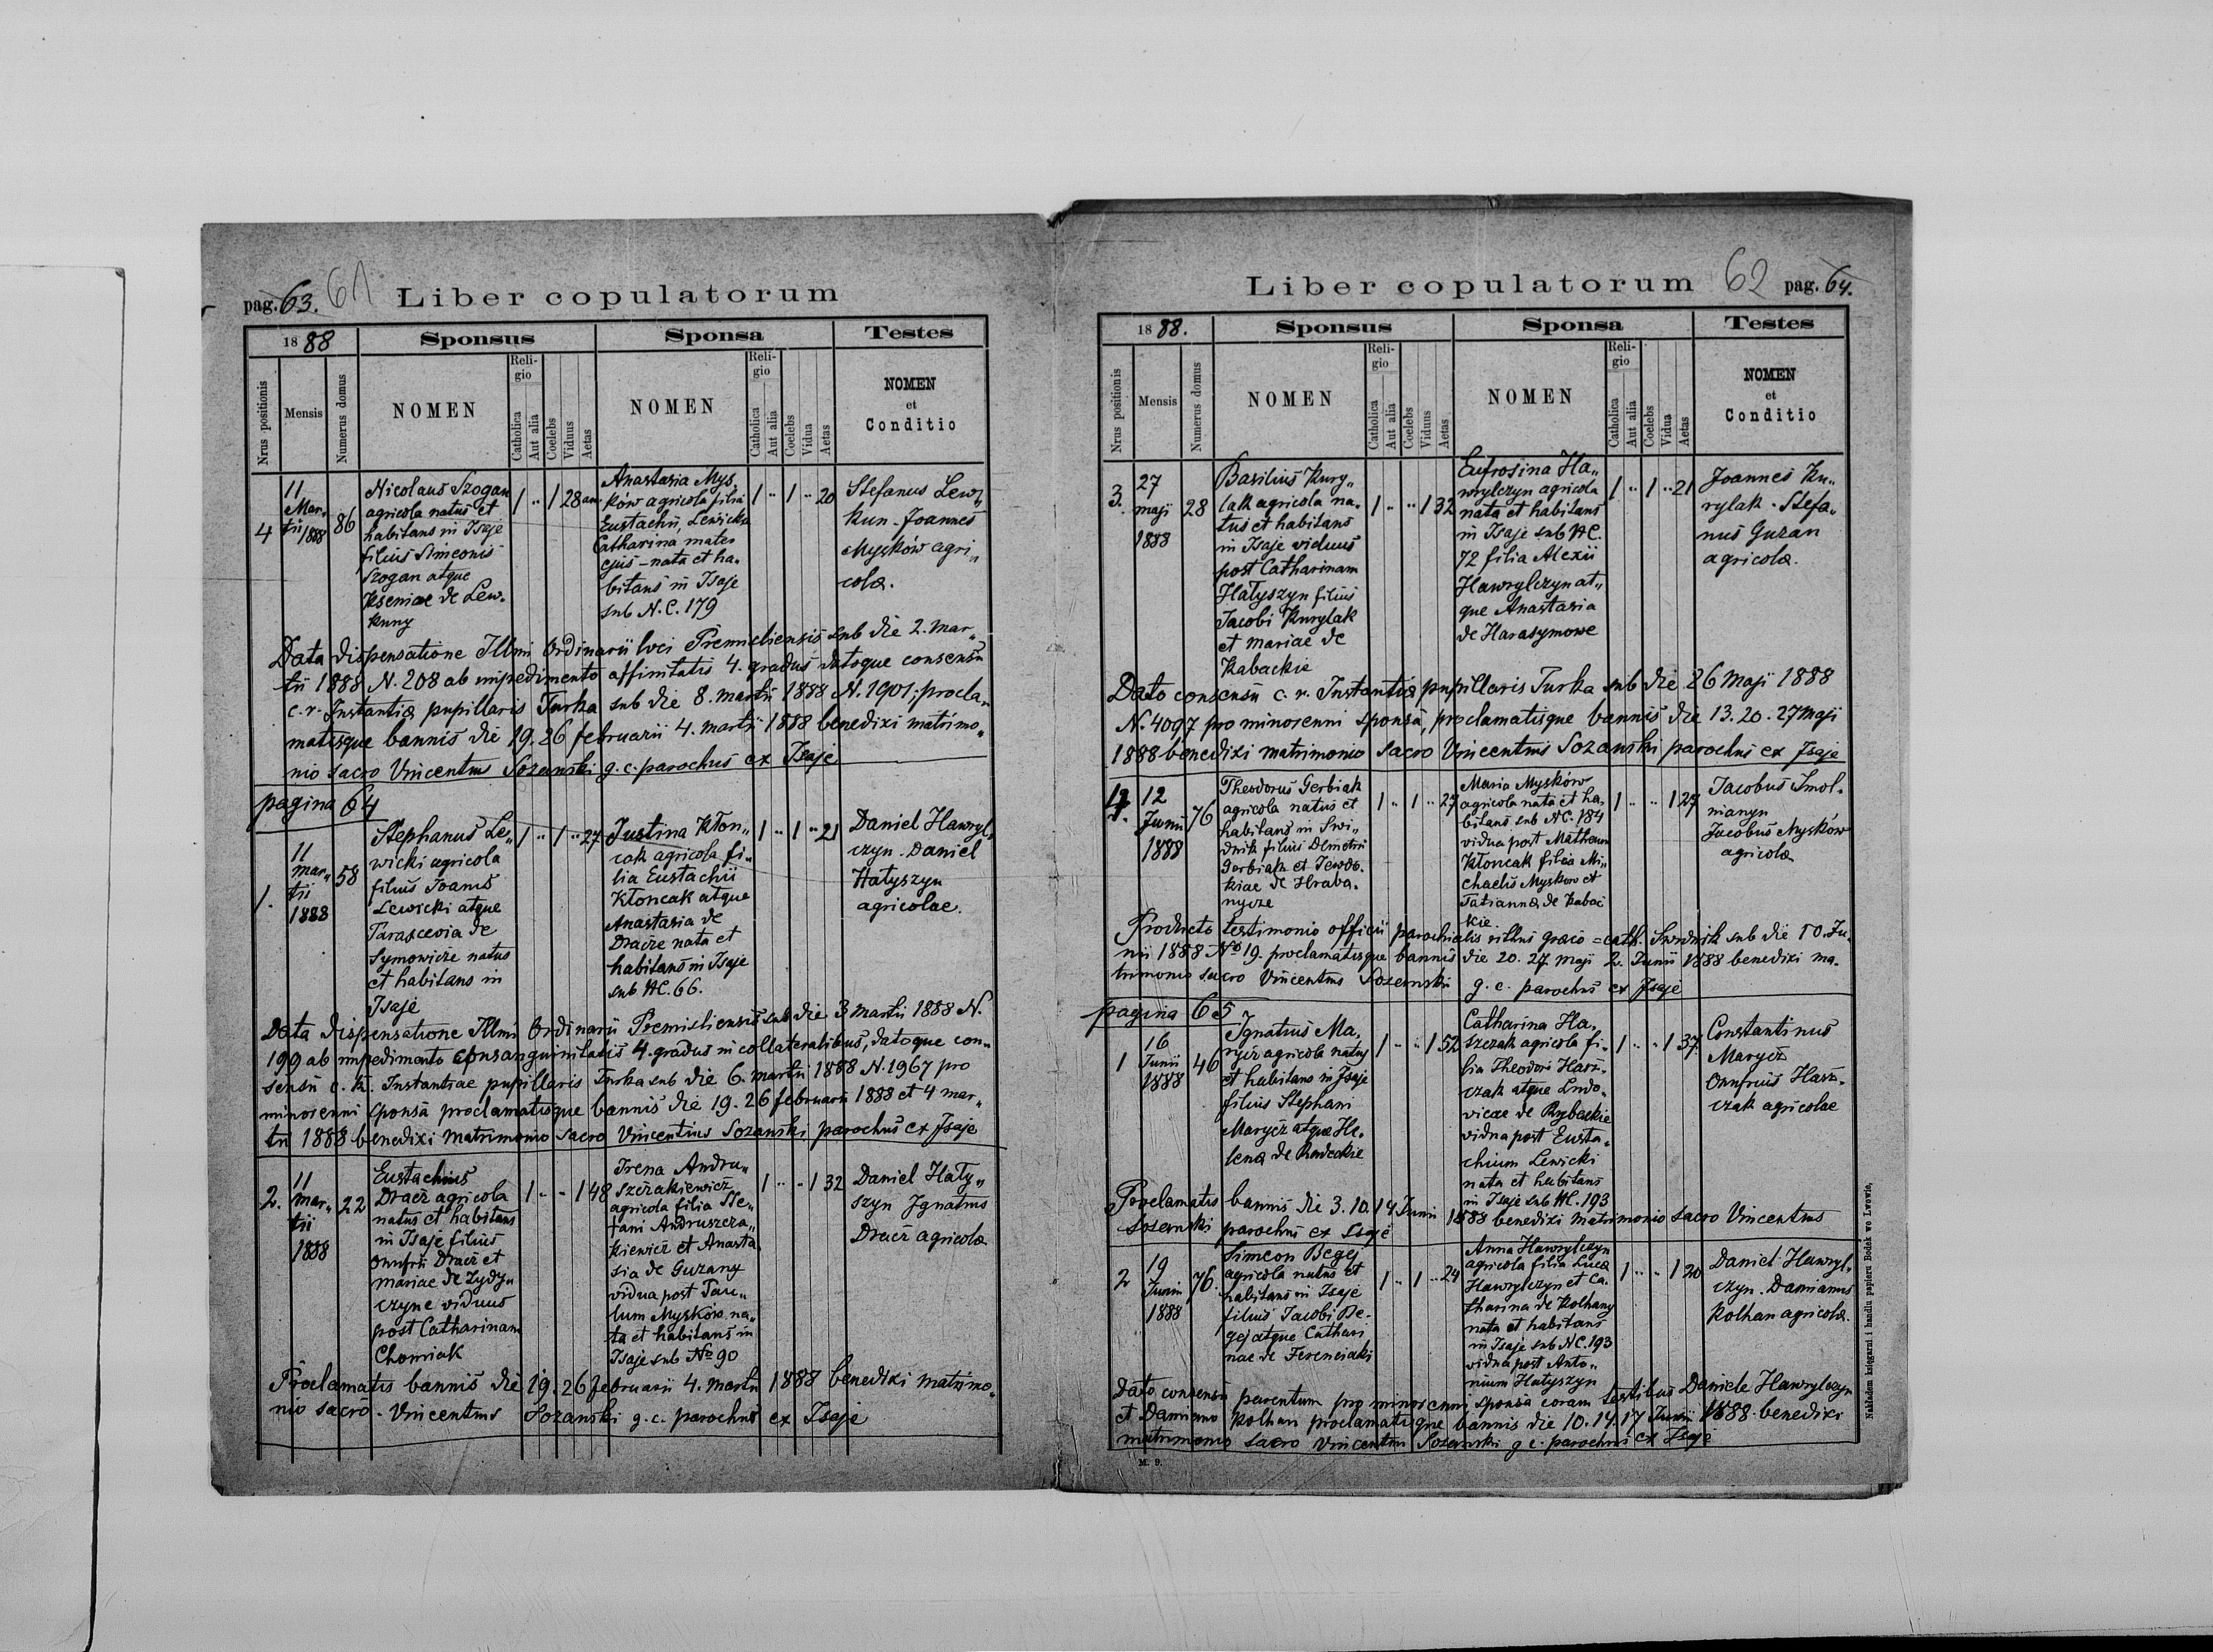 pag. 63. 61 Liber copulatorum
1888 Sponsus Sponsa Testes
Nrus positionis Mensis Numerus domus NOMEN Religio Catholica Aut alia Coelebs Viduus Aetas NOMEN Religio Catholica Aut alia Coelebs Vidua Aetas NOMEN et Conditio
4 11 Martii 1888 86
Nicolaus Szogan
agricola natus et
habitans in Isaje
filius Simeonis
Szogan atque
Kseniae de Lew-
kuny
1 .. 1 28 an
Anastasia Mys„
ków agricola filia
Eustachii, Lewicka
Catharina mater
ejus - nata et ha-
bitans in Isaje
sub N.C. 179
1 .. 1 .. 20
Stefanus Lew„
kun - Joannes
Mysków agri„
colæ.
Data dispensatione Illmi Ordinarii loci Premisliensis sub die 2. Mar„
tii 1888 N. 208 ab impedimento affinitatis 4. gradus datoque consensu
c.r. Instantiæ pupillaris Turka sub die 8. martii 1888 N. 1901; procla„
matisque bannis die 19. 26 februarii 4. martii 1888 benedixi matrimo„
nio sacro Vincentius Sozanski g.c. parochus ex Isaje
pagina 64
1. 11 mar„ tii 1888 58
Stephanus Le„
wicki agricola
filius Joanis
Lewicki atque
Parascevia de
Symowicze natus
et habitans in
Isaje
1 .. 1 .. 27
Justina Kłon„
cak agricola fi„
lia Eustachii
Kłoncak atque
Anastasia de
Dracze nata et
habitans in Isaje
sub NC. 66.
1 .. 1 .. 21
Daniel Hawryl„
czyn - Daniel
Hatyszyn
agricolae.
Data dispensatione Illmi Ordinarii Premisliensis sub die 3 martii 1888 N.
199 ab impedimento consanguinitatis 4. gradus in collateralibus, datoque con„
sensu c.k. Instantiae pupillaris Turka sub die 6. martii 1888 N. 1967 pro
minorenni sponsa proclamatisque bannis die 19. 26 februarii 1888 et 4 mar„
tii 1888 benedixi matrimonio sacro Vincentius Sozanski parochus ex Isaje
2. 11 mar„ tii 1888 22
Eustachius
Dracz agricola
natus et habitans
in Isaje filius
Onufrii Dracz et
mariae de Zydy„
czyne viduus
post Catharinam
Chomiak
1 .. - 1 48
Irena Andru„
szczakiewicz
agricola filia Ste„
fani Andruszcza„
kiewicz et Anasta„
sia de Guzany
vidua post Pau„
lum Mysków na„
ta et habitans in
Isaje sub No 90
1 .. - 1 32
Daniel Haty„
szyn Ignatius
Dracz agricolæ
Proclamatis bannis die 19. 26 februarii 4. martii 1888 benedixi matrimo„
nio sacro - Vincentius Sozanski g.c. parochus ex Isaje
Liber copulatorum 62 pag. 64.
1888. Sponsus Sponsa Testes
Nrus positionis Mensis Numerus domus NOMEN Religio Catholica Aut alia Coelebs Viduus Aetas NOMEN Religio Catholica Aut alia Coelebs Vidua Aetas NOMEN et Conditio
3. 27 maji 1888 28
Basilius Kury„
lak agricola na-
tus et habitans
in Isaje viduus
post Catharinam
Hatyszyn filius
Jacobi Kurylak
et mariae de
Kabackie
1 .. .. 1 32
Eufrosina Ha„
wrylczyn agricola
nata et habitans
in Isaje sub NC.
72 filia Alexii
Hawrylczyn at„
que Anastasia
de Harasymowe
1 .. 1 .. 21
Joannes Ku„
rylak - Stefa„
nus Guzan
agricolæ.
Dato consensu c.r. Instantiæ pupillaris Turka sub die 26 Maji 1888
N. 4097 pro minorenni sponsa, proclamatisque bannis die 13. 20. 27 maji
1888 benedixi matrimonio sacro Vincentius Sozanski parochus ex Isaje
4. 12 Junii 1888 76
Theodorus Gerbiak
agricola natus et
habitans in Swi„
dnik filius Demetrii
Gerbiak et Jewdo„
kiae de Hraba„
nycze
1 .. 1 .. 27
Maria Mysków
agricola nata et ha„
bitans sub NC. 184
vidua post Matheum
Kłoncak filia Mi„
chaelis Myskow et
Tatianna de Kabac
kie.
1 .. .. 1 27
Jacobus Smol-
nianyn
Jacobus Mysków
agricolæ
Producto testimonio officii parochialis ritus græco=cath. Swidnik sub die 10. Ju„
nii 1888 No 19. proclamatisque bannis die 20. 27 maji 2. Junii 1888 benedixi ma-
trimonio sacro Vincentius Sozanski g.c. parochus ex Isaje
pagina 65
1 16 Junii 1888 46
Ignatius Ma„
rycz agricola natus
et habitans in Isaje
filius Stephani
Marycz atque He„
lena de Rondeckie
1 .. .. 1 52
Catharina Ha„
szczak agricola fi-
lia Theodori Hasz„
czak atque Ludo„
vicae de Rybackie
vidua post Eusta„
chium Lewicki
nata et habitans
in Isaje sub NC. 193
1 .. .. 1 37.
Constantinus
Marycz
Onufrius Hasz„
czak agricolae
Proclamatis bannis die 3. 10. 14 Junii 1888 benedixi matrimonio sacro Vincentius
Sozanski parochus ex Isaje
2 19 Junii 1888 76.
Simeon Begej
agricola natus et
habitans in Isaje
filius Jacobi Be-
gej atque Cathari
nae de Ferenciaki
1 .. 1 .. 24
Anna Hawrylczyn
agricola filia Lucæ
Hawrylczyn et Ca„
tharina de Kolhany
nata et habitans
in Isaje sub NC. 193
vidua post Anto„
nium Hatyszyn
1 .. .. 1 20
Daniel Hawryl„
czyn - Damianus
Kolhan agricolæ.
Dato consensu parentum pro minorenni sponsa coram testibus Daniele Hawrylczyn
et Damiano Kolhan proclamatisque bannis die 10. 14. 17 Junii 1888 benedixi
matrimonio sacro Vincentius Sozanski g c. parochus ex Isaje
M. 9.
Nakładem księgarni i handlu papieru Bodek we Lwowie,